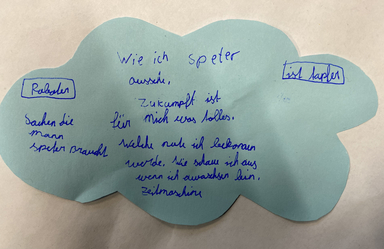 Wie ich speter
aussehe.
Zukumpft ist
für mich was tolles.
welche note ich bekommen
werde. Wie schaue ich aus
wenn ich erwachsen bin.
Zeitmaschine
Roboter
Sachen die
mann
speter Braucht
ist tapfer